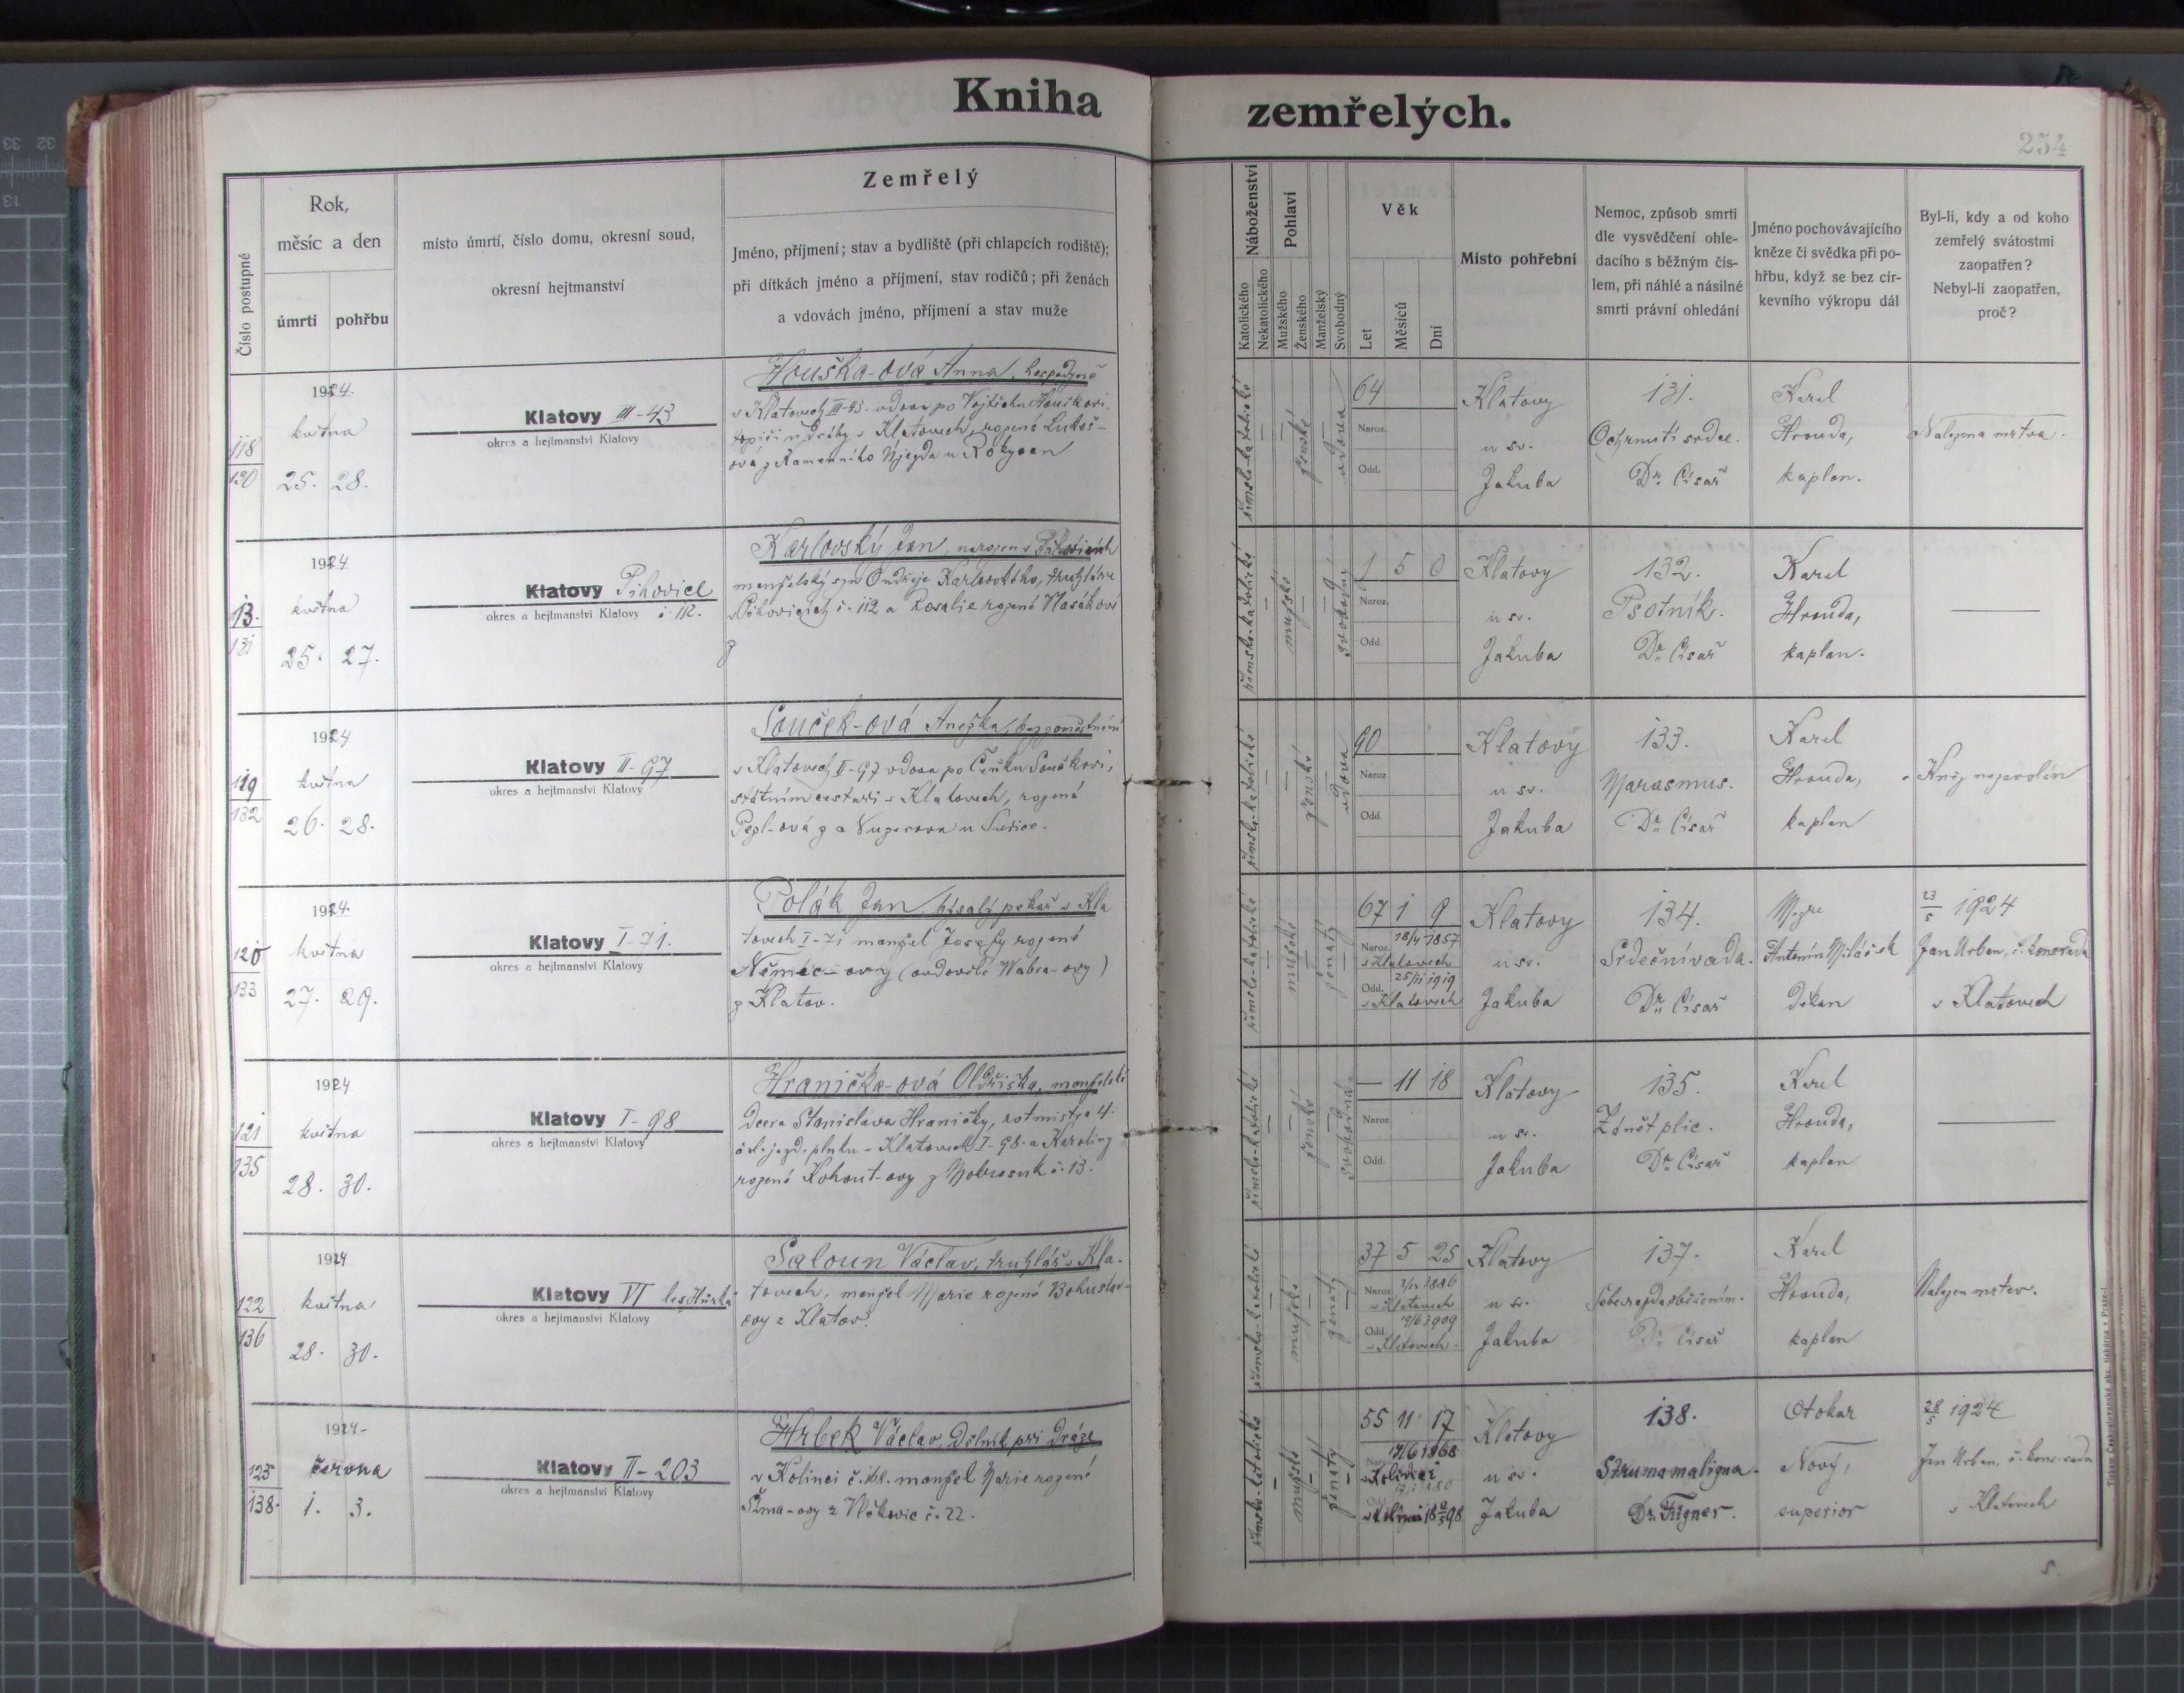 Kniha zemřelých.
234
Číslo postupné
Rok,
měsíc a den
úmrtí pohřbu
místo úmrtí, číslo domu, okresní soud,
okresní hejtmanství
Zemřelý
Jméno, příjmení; stav a bydliště (při chlapcích rodiště);
při dítkách jméno a příjmení, stav rodičů; při ženách
a vdovách jméno, příjmení a stav muže
Náboženství
Katolického
Nekatolického
Pohlaví
Mužského
Ženského
Manželský
Svobodný
Věk
Let
Měsíců
Dní
Místo pohřební
Nemoc, způsob smrti
dle vysvědčení ohle-
dacího s běžným čís-
lem, při náhlé a násilné
smrti právní ohledání
Jméno pochovávajícího
kněze či svědka při po-
hřbu, když se bez cír-
kevního výkropu dál
Byl-li, kdy a od koho
zemřelý svátostmi
zaopatřen?
Nebyl-li zaopatřen,
proč?
118
130
1924.
května
25. 28.
Klatovy III-43
okres a hejtmanství Klatovy
Houška-ová Anna, hospodyně
v Klatovech III-43. vdova po Vojtěchu Houškovi,
topiči u dráhy v Klatovech, rozená Lukeš-
ová z Kamenného Újezda u Rokycan
římsko-katolické
ženské
vdova
64
Naroz.
Odd.
Klatovy
u sv.
Jakuba
131.
Ochrnutí srdce.
Dr. Císař
Karel
Hrouda,
kaplan.
Nalezena mrtva.
13.
131
1924
května
25. 27.
Klatovy Pihovice
okres a hejtmanství Klatovy č. 112.
Karlovský Jan, narozen v Pihovicích
manželský syn Ondřeje Karlovského, truhláře
v Pihovicích č. 112 a Rosalie rozené Hasákové
z
římsko-katolické
mužské
svobodný
1 5 0
Naroz.
Odd.
Klatovy
u sv.
Jakuba
132.
Psotník.
Dr. Císař
Karel
Hrouda,
kaplan.
119
132
1924
května
26. 28.
Klatovy II-97
okres a hejtmanství Klatovy
Souček-ová Anežka,
v Klatovech II-97 vdova po Čeňku Součkovi,
státním cestaři v Klatovech, rozená
Pegl-ová z u Sušice.
římsko-katolické
ženské
vdova
90
Naroz.
Odd.
Klatovy
u sv.
Jakuba
133.
Marasmus.
Dr. Císař
Karel
Hrouda,
kaplan
Kněz nezavolán
120
133
1924.
května
27. 29.
Klatovy I-71.
okres a hejtmanství Klatovy
Polák Jan, bývalý pekař v Kla
tovech I-71 manžel Josefy rozené
Němec-ovy (ovdovělé Wabra-ovy)
z Klatov.
římsko-katolické
mužské
ženatý
67 1 9
Naroz. 18/4 1857
v Klatovech
Odd. 25/11 1919
v Klatovech
Klatovy
u sv.
Jakuba
134.
Srdeční vada.
Dr. Císař
Msgre
Antonín Miláček
děkan
23/5 1924
Jan Urban, č. kons. rada
v Klatovech
121
135
1924
května
28. 30.
Klatovy I-98
okres a hejtmanství Klatovy
Hranička-ová Oldřiška, manželská
dcera Stanislava Hraničky, rotmistra 4.
čsl. jezd. pluku v Klatovech I-98. a Karoliny
rozené Kohout-ovy z Mobrosuk č. 13.
římsko-katolické
ženské
svobodná
— 11 18
Naroz.
Odd.
Klatovy
u sv.
Jakuba
135.
Zánět plic.
Dr. Císař
Karel
Hrouda,
kaplan
122
136
1924
května
28. 30.
Klatovy VI les Hůrka
okres a hejtmanství Klatovy
Saloun Václav, truhlář v Kla-
tovech, manžel Marie rozené Bohuslav-
ovy z Klatov.
římsko-katolické
mužské
ženatý
37 5 25
Naroz. 3/12 1886
v Klatovech
Odd. 19/6 1909
v Klatovech.
Klatovy
u sv.
Jakuba
137.
Sebevražda oběšením.
Dr. Císař
Karel
Hrouda,
kaplan
Nalezen mrtev.
123
138.
1924
června
1. 3.
Klatovy II-203
okres a hejtmanství Klatovy
Hrbek Václav, dělník při dráze
v Kolinci č. 162. manžel Marie rozené
Sůma-ovy z Vlčkovic č. 22.
římsko-katolické
mužské
ženatý
55 11 17
Naroz. 1868
v Kolinci
Odd.
1898
Klatovy
u sv.
Jakuba
138.
Struma maligna.
Dr. Figner.
Otokar
Nový,
superior
28/5 1924
Jan Urban, č. kons. rada
v Klatovech
5.